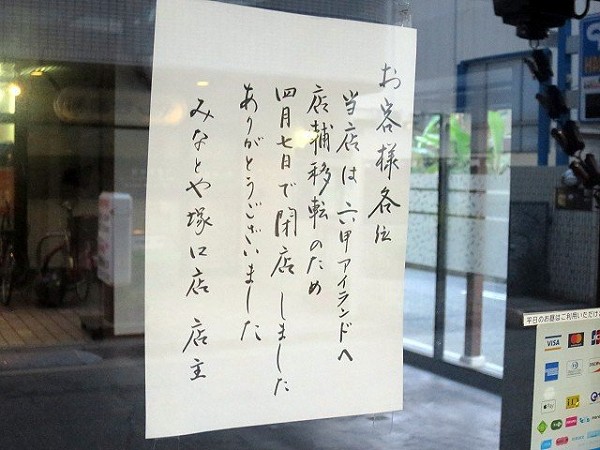 お客様各位
当店は六甲アイランドへ
店輔移転のため
四月七日で閉店しました
ありがとうございました
みなとや塚口店 店主
平日のお昼はご利用いただけ
VISA